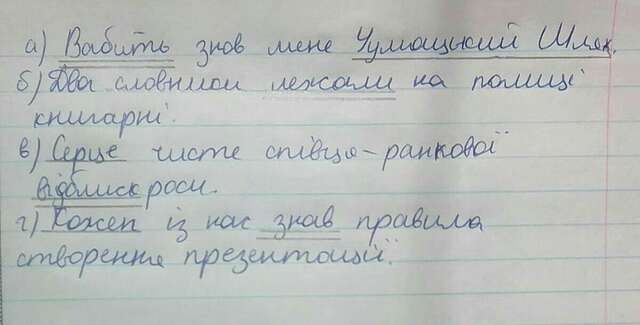 а) Вабить знов мене Чумацький Шлях.
б) Два словники лежали на полиці
книгарні.
в) Серце чисте співця – ранкової
відблиск роси.
г) Кожен із нас знав правила
створення презентації.